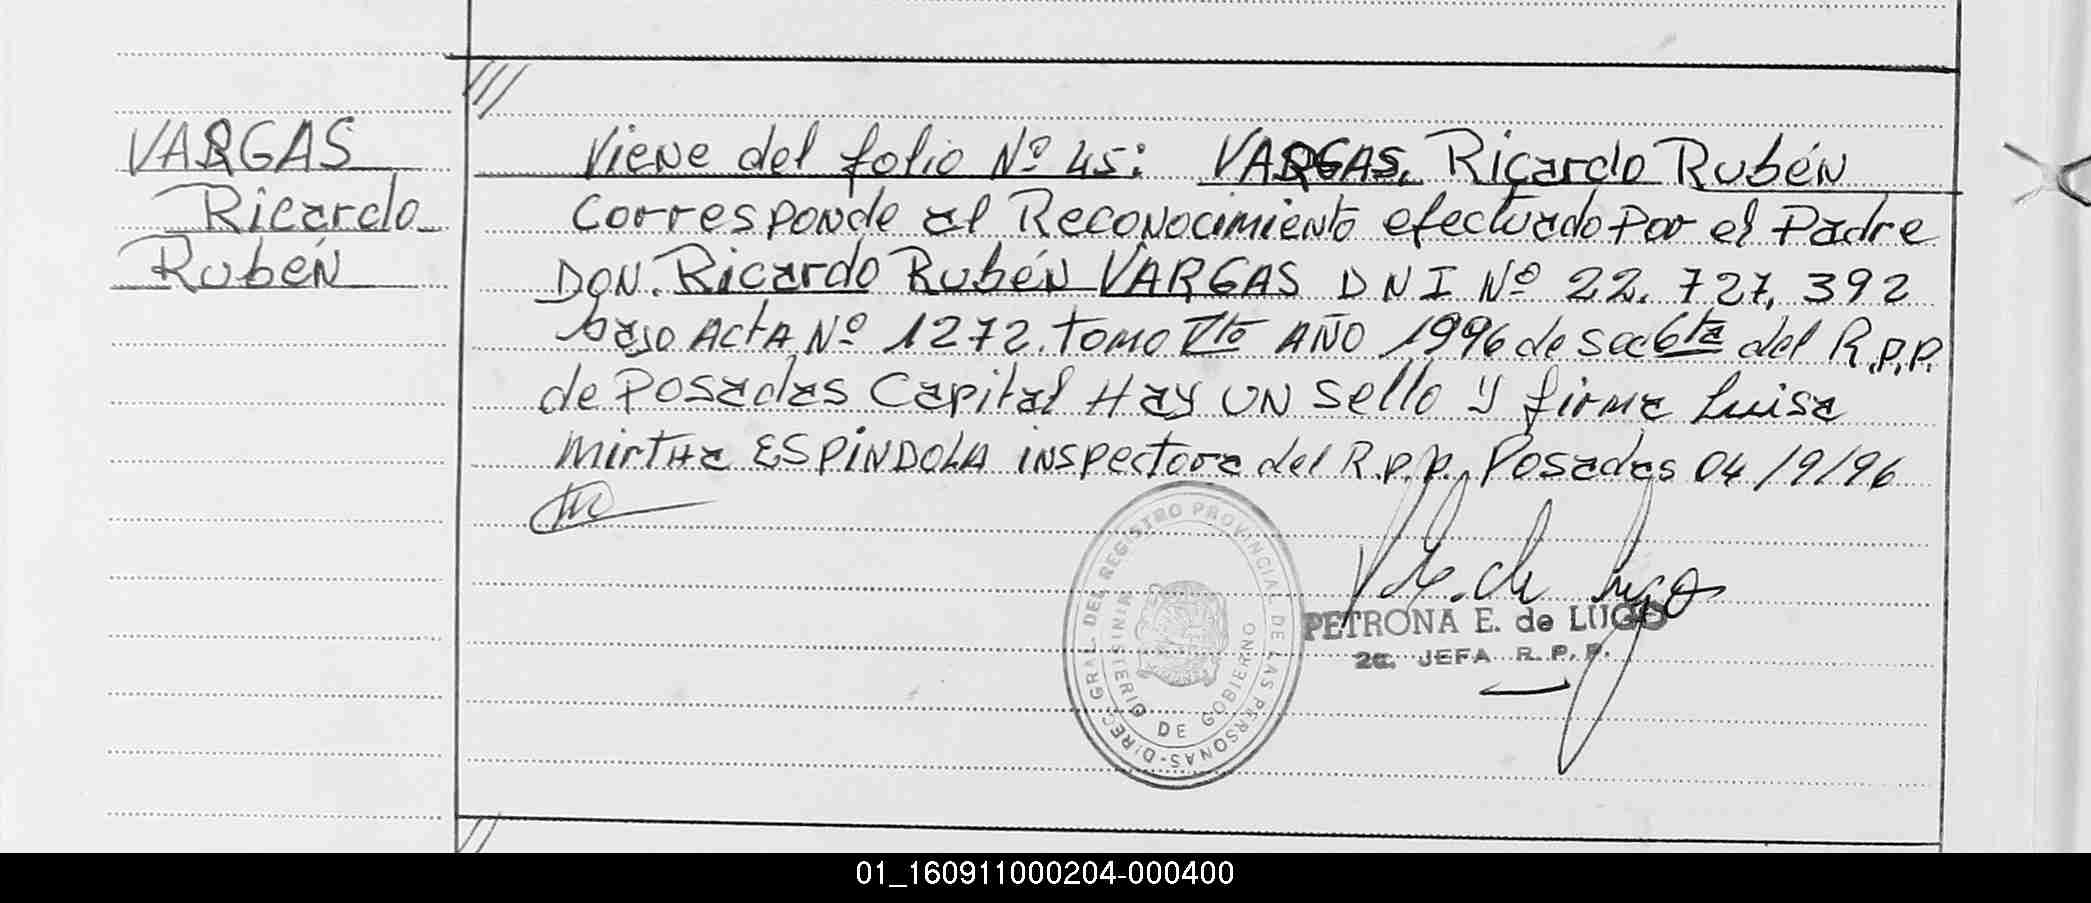 VARGAS
Ricardo
Rubén
Viene del folio Nº 45: VARGAS, Ricardo Rubén
Corresponde al Reconocimiento efectuado Por el Padre
DON. Ricardo Rubén VARGAS DNI Nº 22.727.392
bajo ActA Nº 1272. tomo Vto AÑO 1996 de sec 6ta del R.P.P.
de Posadas Capital Hay UN sello y firma Luisa
Mirtha ESPINDOLA inspectora del R.P.P. Posadas 04/9/96
DIREC. GRAL. DEL REGISTRO PROVINCIAL DE LAS PERSONAS
MINISTERIO DE GOBIERNO
PETRONA E. de LUGO
2a. JEFA R.P.P.
01_160911000204-000400